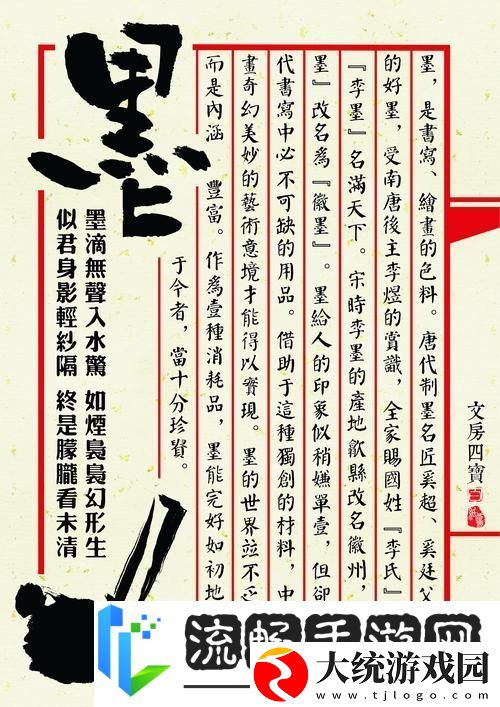 文房四寶
墨，是書寫、繪畫的色料。唐代制墨名匠奚超、奚廷父
的好墨，受南唐後主李煜的賞識，全家賜國姓『李氏』
『李墨』名滿天下。宋時李墨的產地歙縣改名徽州，
墨』改名為『徽墨』。墨給人的印象似稍嫌單壹，但卻
代書寫中必不可缺的用品。借助于這種獨創的材料，中
畫奇幻美妙的藝術意境才能得以實現。墨的世界竝不乏
而是內涵 豐富。作為壹種消耗品，墨能完好如初地
于今者，當十分珍貴。
墨
墨滴無聲入水驚 如煙裊裊幻形生
似君身影輕紗隔 終是朦朧看未清
流畅手游网
大统游戏园
www.tjlogo.com